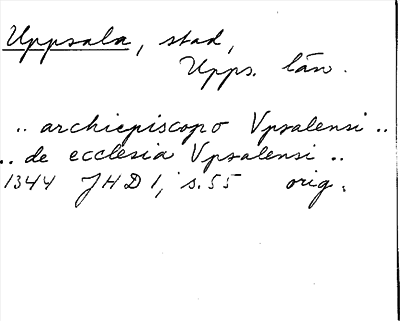 Uppsala, stad,
Upps. län.
.. archiepiscopo Vpsalensi ..
.. de ecclesia Vpsalensi ..
1344 JHD 1, s. 55 orig.